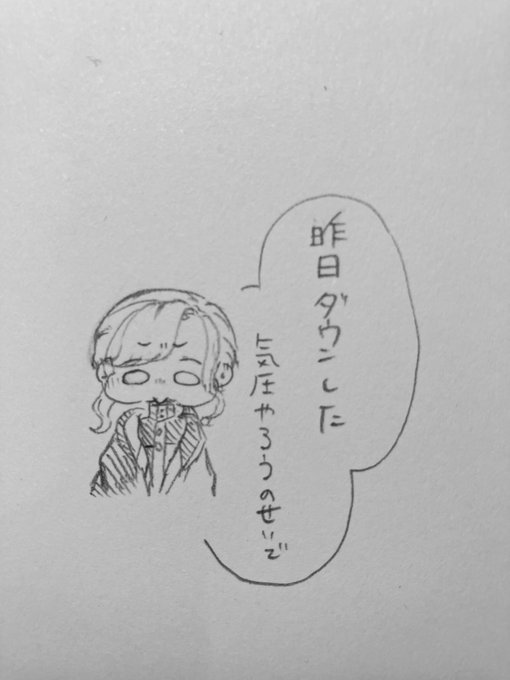 昨日ダウンした
気圧やろうのせいで